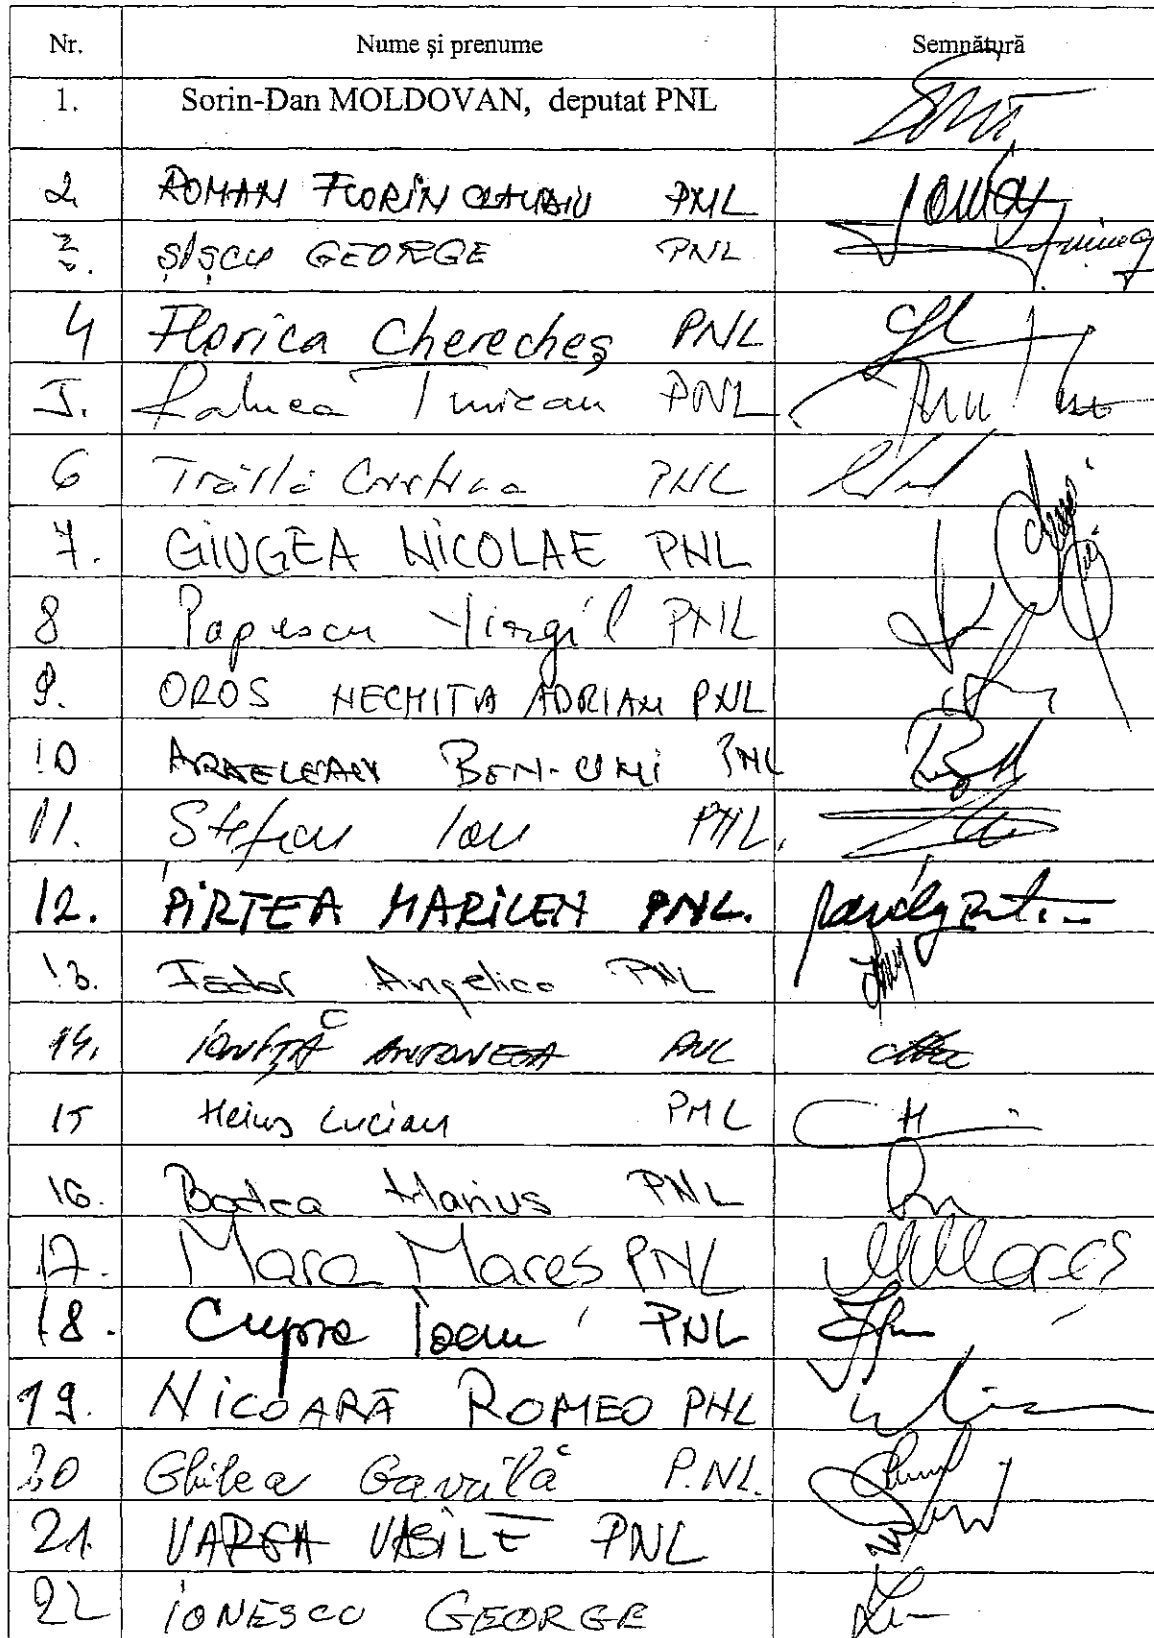 Nr. Nume și prenume Semnătură
1. Sorin-Dan MOLDOVAN, deputat PNL
2 ROMAN FLORIN CLAUDIU PNL
3. ȘIȘCU GEORGE PNL
4 Florica Cherecheș PNL
5. Raluca Turcan PNL
6 Trăilă Cristina PNL
7. GIUGEA NICOLAE PNL
8 Popescu Virgil PNL
9. OROS NECHITA ADRIAN PNL
10 ARDELEAN BEN-ONI PNL
11. Stefan Ion PNL.
12. PIRTEA MARILEN PNL.
13. Fador Angelica PNL
14. IONIȚĂ ANTONETA PNL
15 Heius Lucian PNL
16. Bodea Marius PNL
17. Mara Mares PNL MMares
18. Cupșa Ioan PNL
19. NICOARĂ ROMEO PNL
20 Ghilea Gavrilă P.NL.
21. VARGA VASILE PNL
22 IONESCU GEORGE